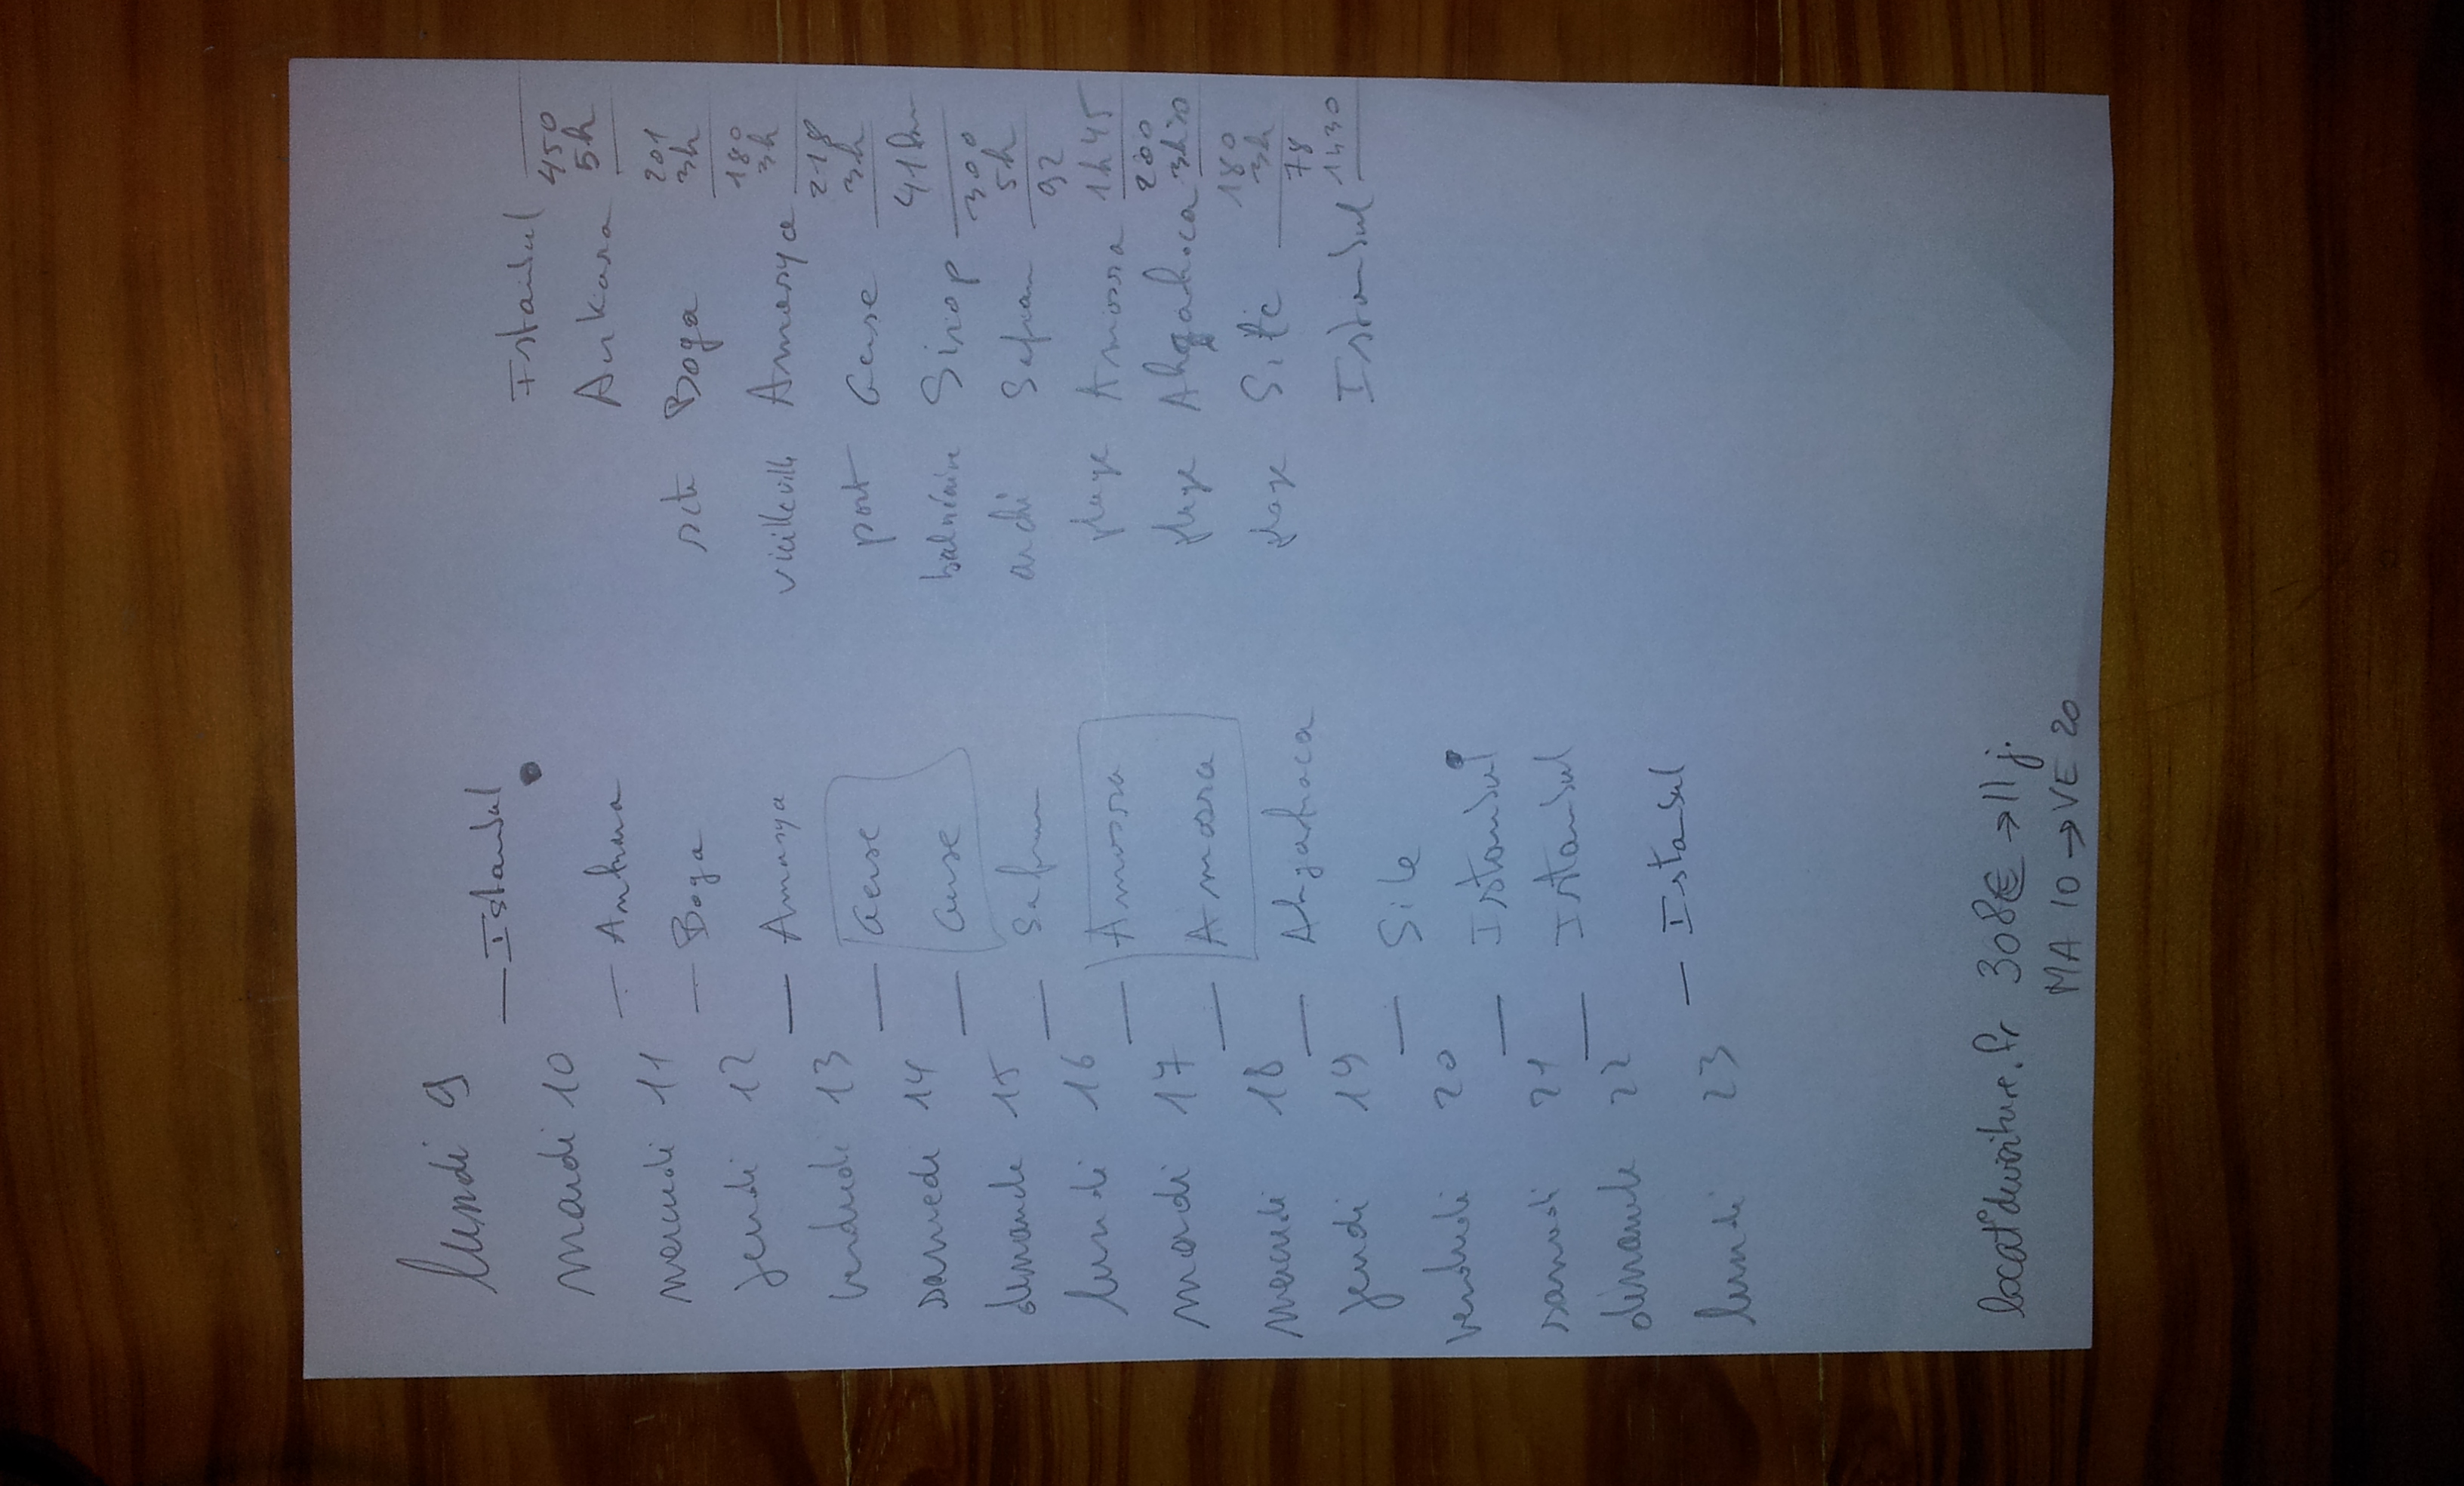 lundi 9
— Istanbul
mardi 10
— Ankara
mercredi 11
— Boga
jeudi 12
— Amasya
vendredi 13
— Gerse
samedi 14
— Gerse
dimanche 15
— Safran
lundi 16
— Amasra
mardi 17
— Amasra
mercredi 18
— Ahçahoca
jeudi 19
— Sile
vendredi 20
— Istanbul
samedi 21
— Istanbul
dimanche 22
— Istanbul
lundi 23
Istanbul
450
Ankara 5h
201
site Boga 3h
180
vieille ville Amasya 3h
218
port Gerse 3h
balnéaire Sinop 41km
300
archi Safran 5h
92
plage Amasra 1h45
200
plage Ahçahoca 3h30
180
plage Sile 3h
78
Istanbul 1h30
locat°devoiture.fr 308€ → 11j.
MA 10 → VE 20